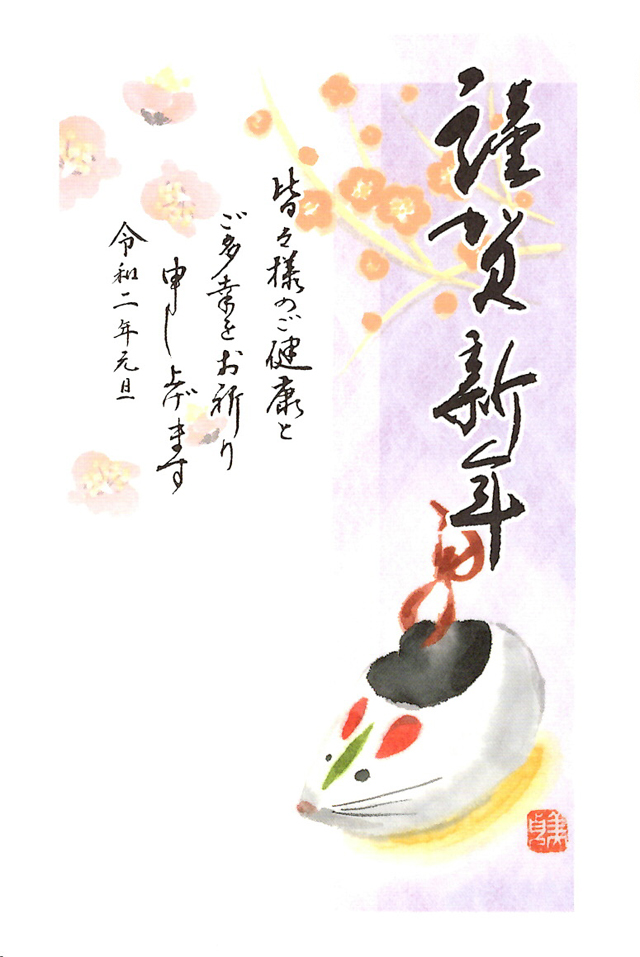 謹賀新年
皆々様のご健康と
ご多幸をお祈り
申し上げます
令和二年元旦